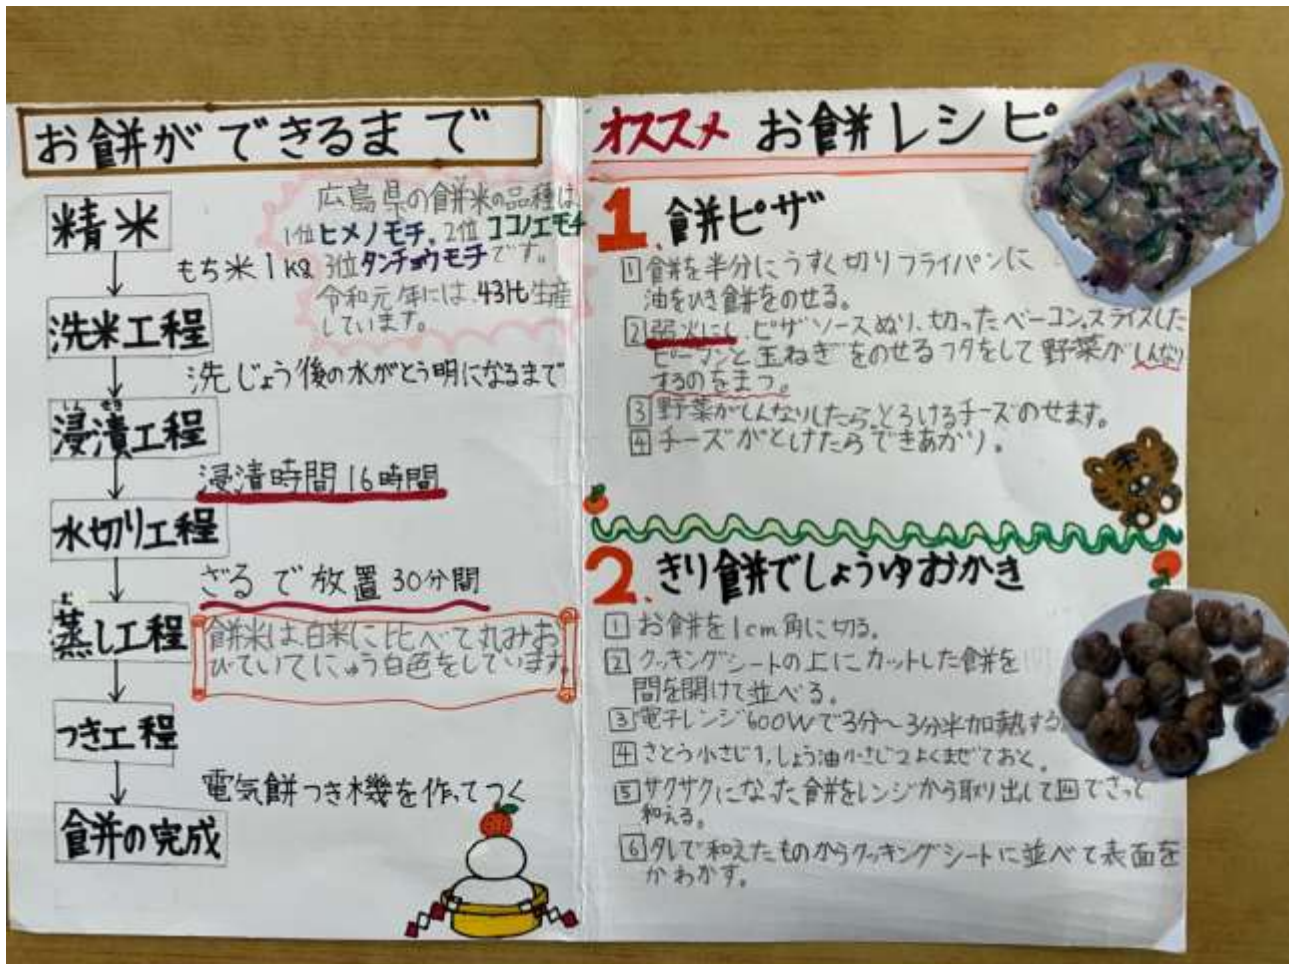 お餅ができるまで
精米
広島県の餅米の品種は、
1位ヒメノモチ、2位ココノエモチ
3位タンチョウモチです。
令和元年には、431t生産
しています。
もち米1kg
洗米工程
洗じょう後の水がとう明になるまで
浸漬工程
浸漬時間16時間
水切り工程
ざるで放置30分間
蒸し工程
餅米は白米に比べて丸みお
びていてにゅう白色をしています。
つき工程
電気餅つき機を作ってつく
餅の完成
オススメ お餅レシピ
1. 餅ピザ
1 餅を半分にうすく切りフライパンに
油をひき餅をのせる。
2 弱火にし、ピザソースぬり、切ったベーコン、スライスした
ピーマンと玉ねぎをのせるフタをして野菜がしんなり
するのをまつ。
3 野菜がしんなりしたら、とろけるチーズのせます。
4 チーズがとけたらできあがり。
2. きり餅でしょうゆおかき
1 お餅を1cm角に切る。
2 クッキングシートの上にカットした餅を
間を開けて並べる。
3 電子レンジ600Wで3分〜3分半加熱する
4 さとう小さじ1、しょう油小さじ2よくまぜておく。
5 サクサクになった餅をレンジから取り出して4でさって
和える。
6 タレで和えたものからクッキングシートに並べて表面を
かわかす。